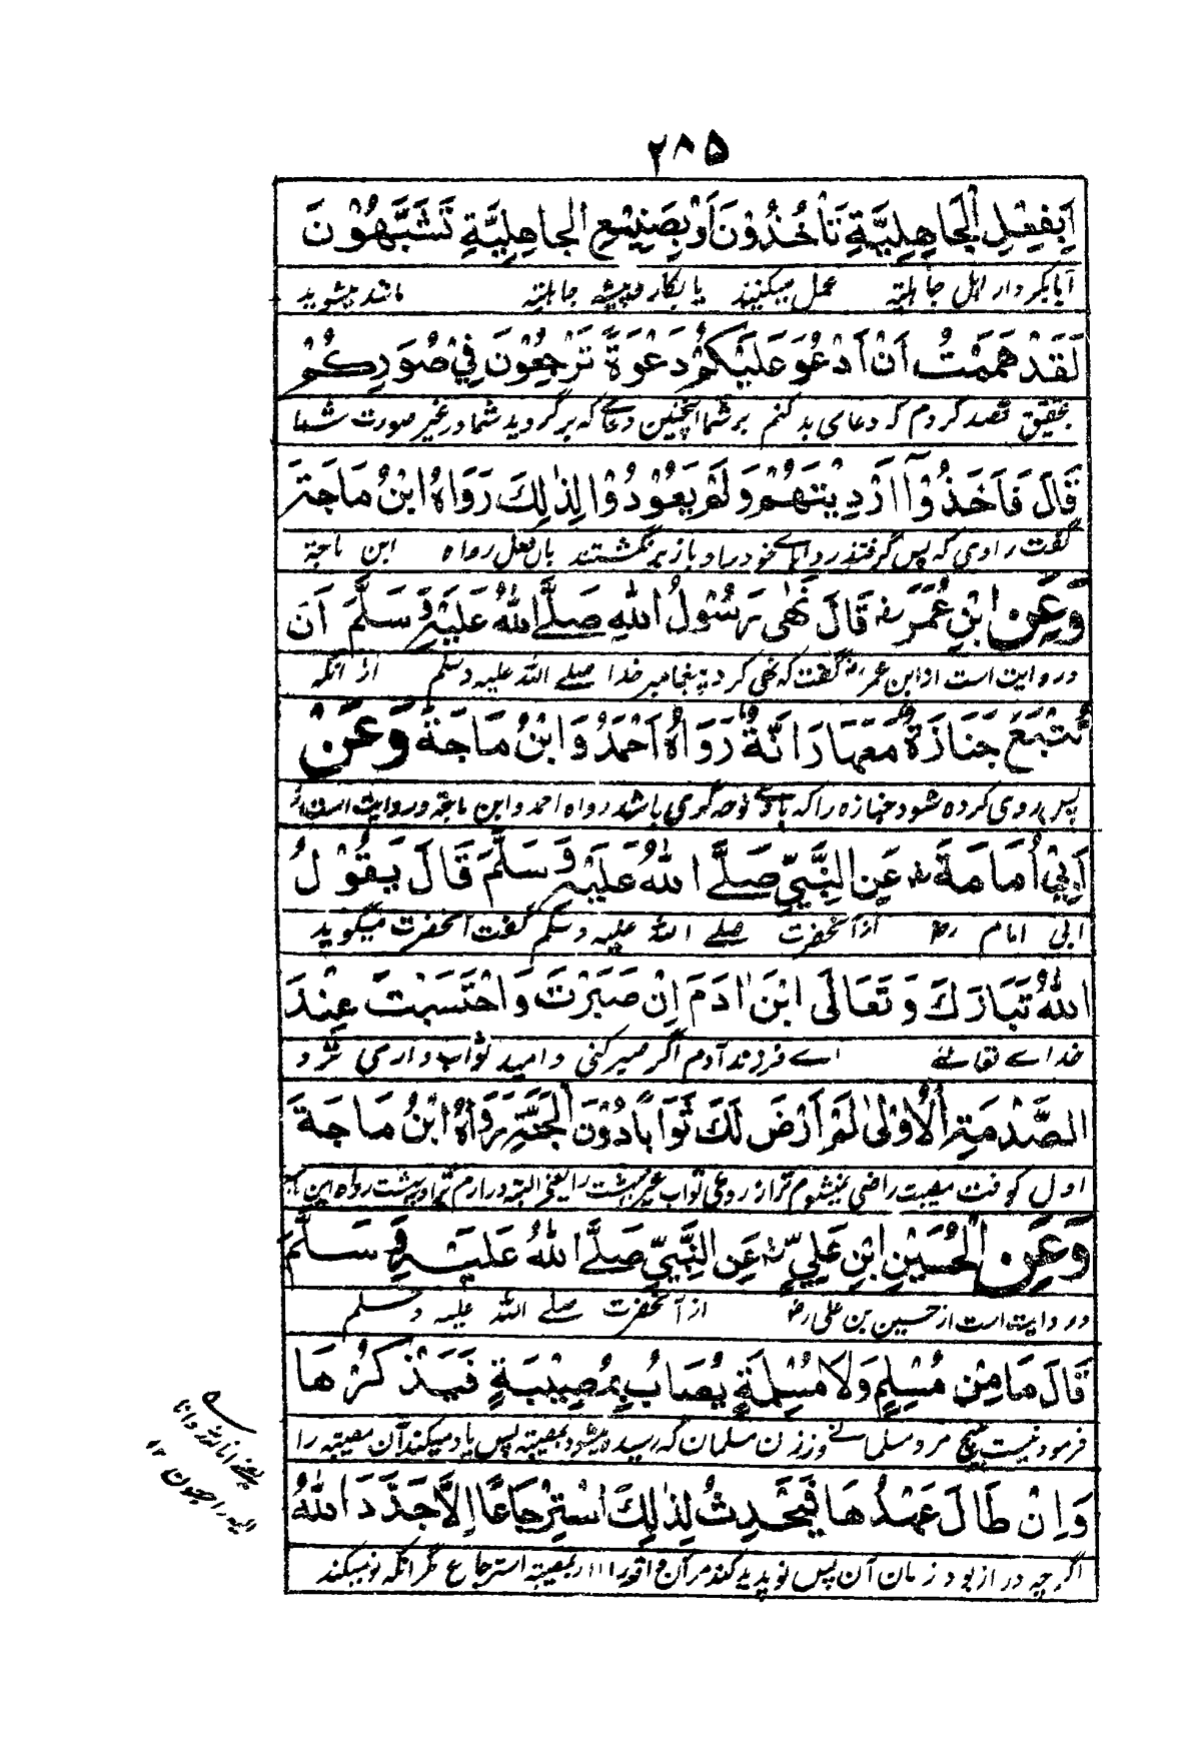 ۲۸۵
اَبِفِعْلِ الْجَاهِلِيَّةِ تَأْخُذُوْنَ اَوْ بِصَنِيْعِ الْجَاهِلِيَّةِ تَشَبَّهُوْنَ
آیا بکردار اہل جاہلیۃ عمل میکنید یا بکار و پیشہ جاہلیۃ مانند میشوید
لَقَدْ هَمَمْتُ اَنْ اَدْعُوَ عَلَيْكُمْ دَعْوَةً تَرْجِعُوْنَ فِيْ صُوَرِكُمْ
بتحقیق قصد کردم کہ دعای بد کنم بر شما اینچنین دعاے کہ برگردید شما در غیر صورت شما
قَالَ فَاَخَذُوْآ اَرْدِيَتَهُمْ وَلَمْ يَعُوْدُوْا لِذٰلِكَ رَوَاهُ ابْنُ مَاجَةَ
گفت راوی کہ پس گرفتند رداہاے خود را و باز برنگشتند بان فعل رواہ ابن ماجۃ
وَعَنِ ابْنِ عُمَرَ رض قَالَ نَهٰى رَسُوْلُ اللهِ صَلَّے اللهُ عَلَيْهِ وَسَلَّمَ اَنْ
و روایت است از ابن عمر رض گفت کہ نہی کرد پیغامبر خدا صلے اللہ علیہ وسلم از انکہ
تُتْبَعَ جَنَازَةٌ مَعَهَا رَانَّةٌ رَوَاهُ اَحْمَدُ وَابْنُ مَاجَةَ وَعَنْ
پس پیروی کردہ شود جنازہ را کہ باوے نوحہ گری باشد رواہ احمد وابن ماجۃ و روایت است از
اَبِيْ اُمَامَةَ رض عَنِ النَّبِيِّ صَلَّے اللهُ عَلَيْهِ وَسَلَّمَ قَالَ يَقُوْلُ
ابی امامہ رض از آنحضرت صلے اللہ علیہ وسلم گفت آنحضرت میگوید
اللهُ تَبَارَكَ وَتَعَالَى ابْنَ اٰدَمَ اِنْ صَبَرْتَ وَاحْتَسَبْتَ عِنْدَ
خداے تعالےٰ اے فرزند آدم اگر صبر کنی و امید ثواب داری نزد
الصَّدْمَةِ الْاُوْلٰى لَمْ اَرْضَ لَكَ ثَوَابًا دُوْنَ الْجَنَّةِ رَوَاهُ ابْنُ مَاجَةَ
اول کوفت مصیبت راضی نمیشوم ترا از روی ثواب غیر بہشت را یعنی البتہ درارم ترا در بہشت رواہ ابن ماجہ
وَعَنِ الْحُسَيْنِ ابْنِ عَلِيٍّ رض عَنِ النَّبِيِّ صَلَّے اللهُ عَلَيْهِ وَسَلَّمَ
و روایت است از حسین بن علی رض از آنحضرت صلے اللہ علیہ وسلم
قَالَ مَا مِنْ مُسْلِمٍ وَلَا مُسْلِمَةٍ يُصَابُ بِمُصِيْبَةٍ فَيَذْكُرُهَا
فرمود نیست ہیچ مرد مسلمانے و زن مسلمان کہ رسیدہ میشود بمصیبتہ پس یاد میکند آن مصیبتہ را
وَاِنْ طَالَ عَهْدُهَا فَيُحْدِثُ لِذٰلِكَ اسْتِرْجَاعًا اِلَّا جَدَّدَ اللهُ
اگرچہ دراز بود زمان آن پس نو پدید کند مر آن استرجاع مگر انکہ نو میکند
یعنے انا للہ وانا
الیہ راجعون ۱۲